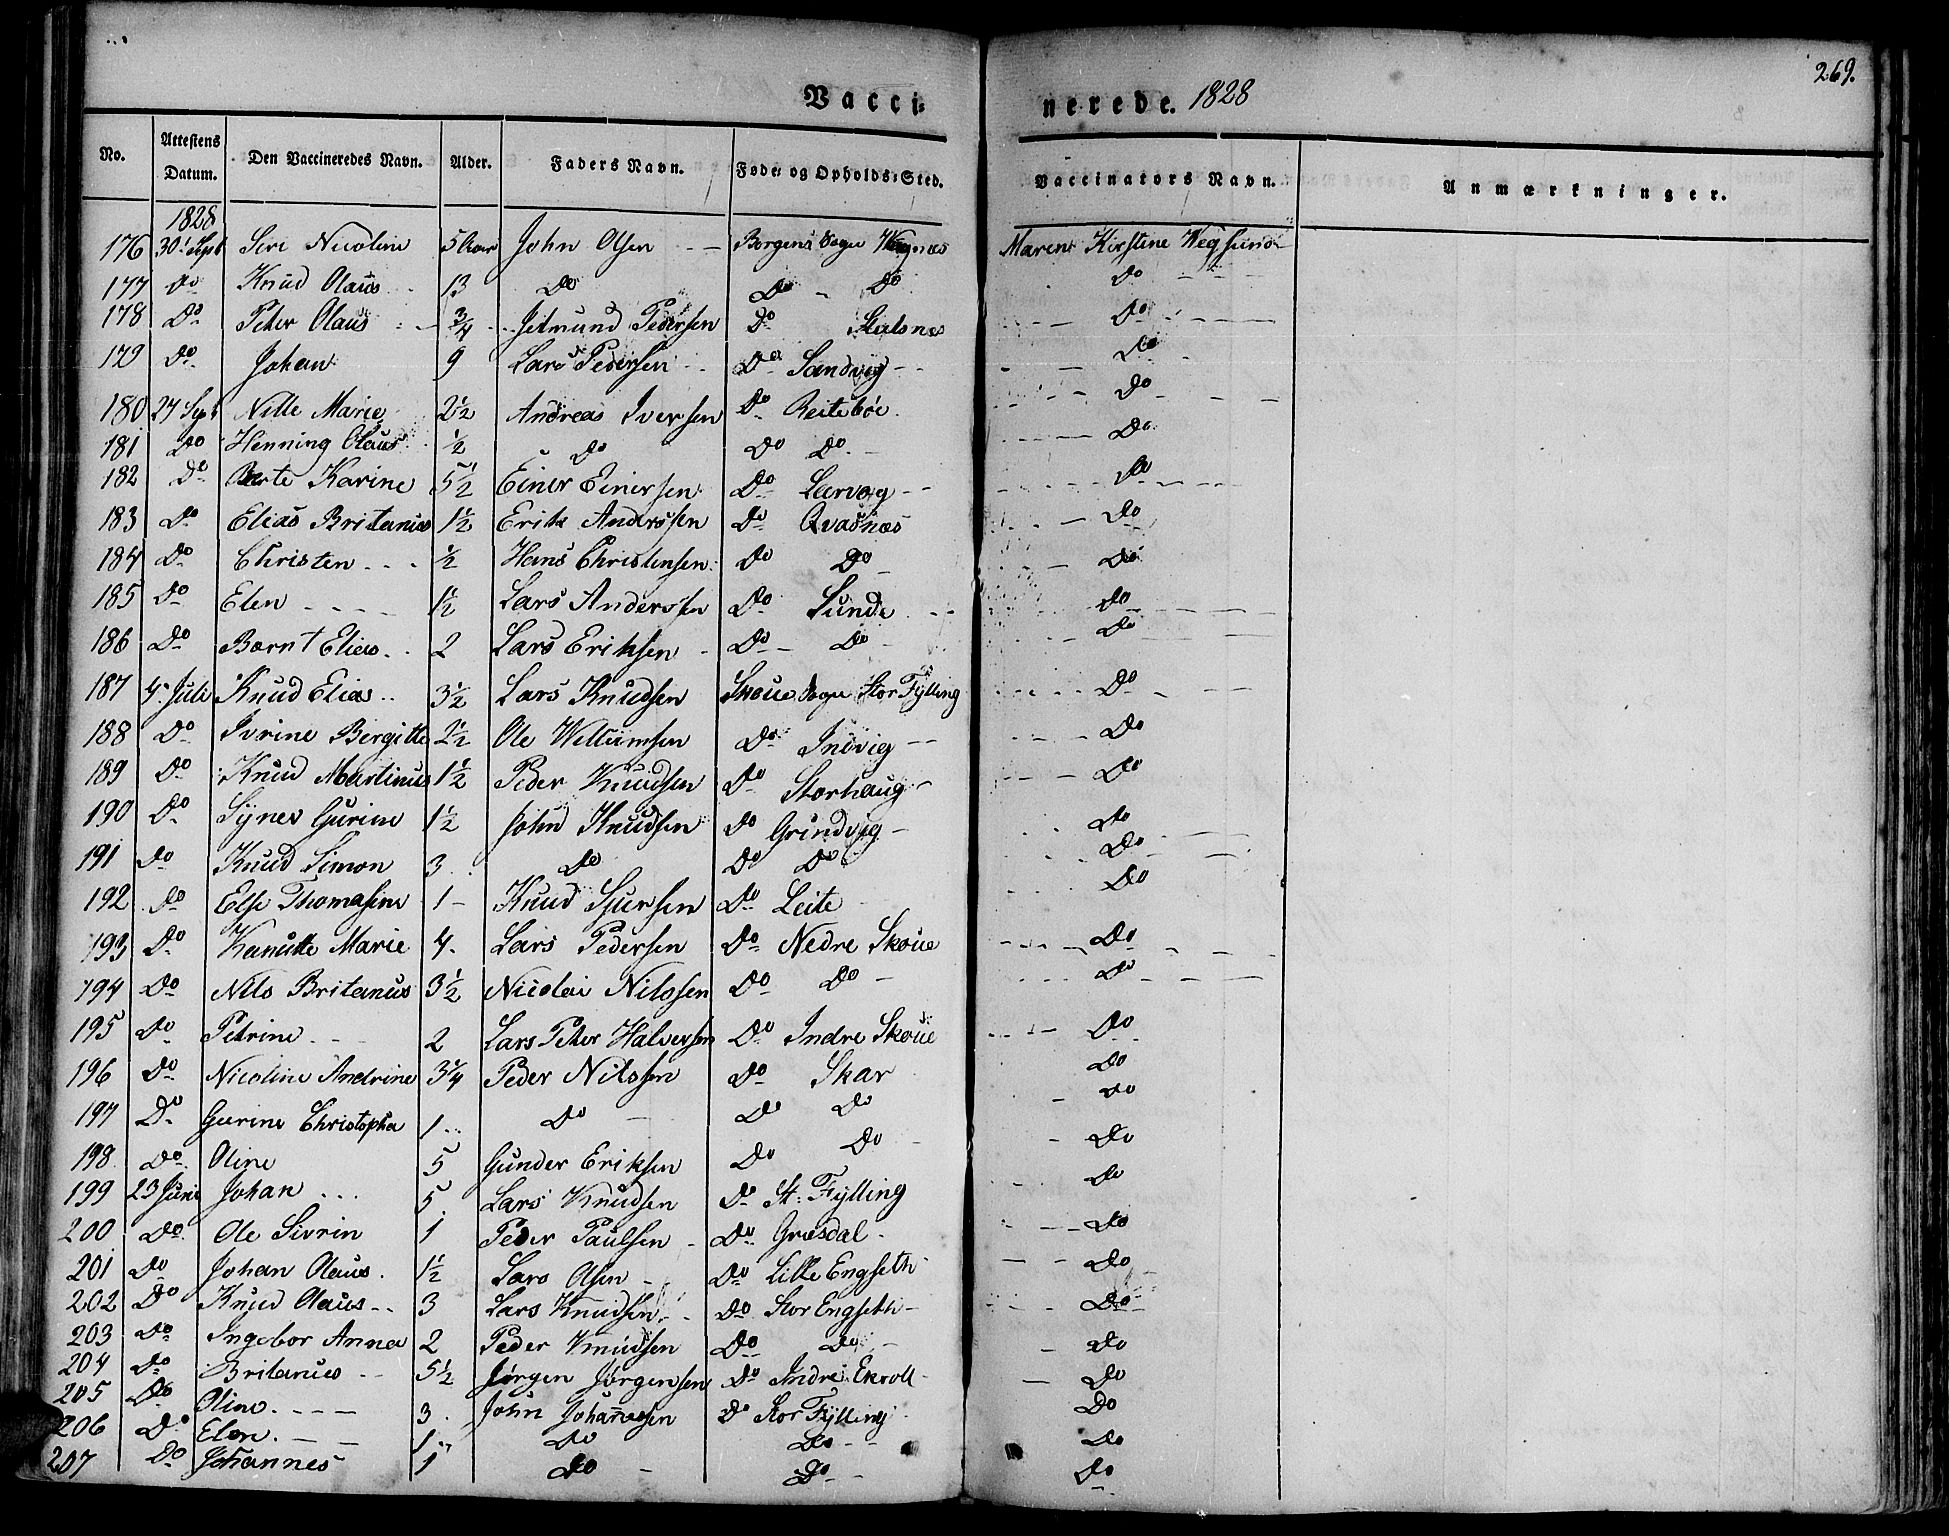 269.
Vacci= nerede. 1828
No. Attestens Datum. Den Vaccineredes Navn. Alder. Faders Navn. Føde= og Opholds=Sted. Vaccinators Navn. Anmærkninger.
1828
176 30' Sept Siri Nicoline 5 Aar John Olsen Borgens Sogn Wegnæs Maren Kirstine Wegsund
177 Do Knud Olaus 13 Do Do Do Do
178 Do Peter Olaus 3/4 Jetmund Pedersen Do Slatsnes Do
179 Do Johan 9 Lars Pedersen Do Sandvig Do
180 27 Sept Nille Marie 2 1/2 Andreas Iversen Do Reitebøe Do
181 Do Henning Olaus 1/2 Do Do Do Do
182 Do Berte Karine 5 1/2 Einer Einersen Do Larvog Do
183 Do Elias Britanus 1 1/2 Erik Anderssen Do Qvasnæs Do
184 Do Christen 1/2 Hans Christensen Do Do Do
185 Do Elen 1 1/2 Lars Anderssen Do Sunde Do
186 Do Bernt Elias 2 Lars Eriksen Do Do Do
187 4. Juli Knud Elias 3 1/2 Lars Knudsen Skoue Sogn Stor Fylling Do
188 Do Ivrine Bergitte 2 1/2 Ole Willumsen Do Indvig Do
189 Do Knud Martinus 1 1/2 Peder Knudsen Do Storhaug Do
190 Do Synes Gurine 1 1/2 John Knudsen Do Grindvig Do
191 Do Knud Simon 3 Do Do Do Do
192 Do Else Thomasine 1 Knud Sjursen Do Leite Do
193 Do Kanutte Marie 4. Lars Pedersen Do Nedre Skoue Do
194 Do Nils Britanus 3 1/2 Nicolai Nilssen Do Do Do
195 Do Petrine 2 Lars Peter Halversen Do Indre Skoue Do
196 Do Nicoline Andrine 3 1/4 Peder Nilssen Do Skar Do
197 Do Gurine Christopha 1 Do Do Do Do
198 Do Oline 5 Gunder Eriksen Do Do Do
199 23 Juni Johan 5. Lars Knudsen Do St: Fylling Do
200 Do Ole Sivrin 1 Peder Paulsen Do Græsdal Do
201 Do Johan Olaus 1 1/2 Lars Olsen Do Lille Engseth Do
202 Do Knud Olaus 3 Lars Knudsen Do Stor Engseth Do
203 Do Ingebor Anna 2 Peder Knudsen Do Do Do
204 Do Britanus 5 1/2 Jørgen Jørgensen Do Indre Ekroll Do
205 Do Oline 3. John Johannesen Do Stor Fylling Do
206 Do Elen 1 Do Do Do
207 Do Johannes 1 Do Do Do